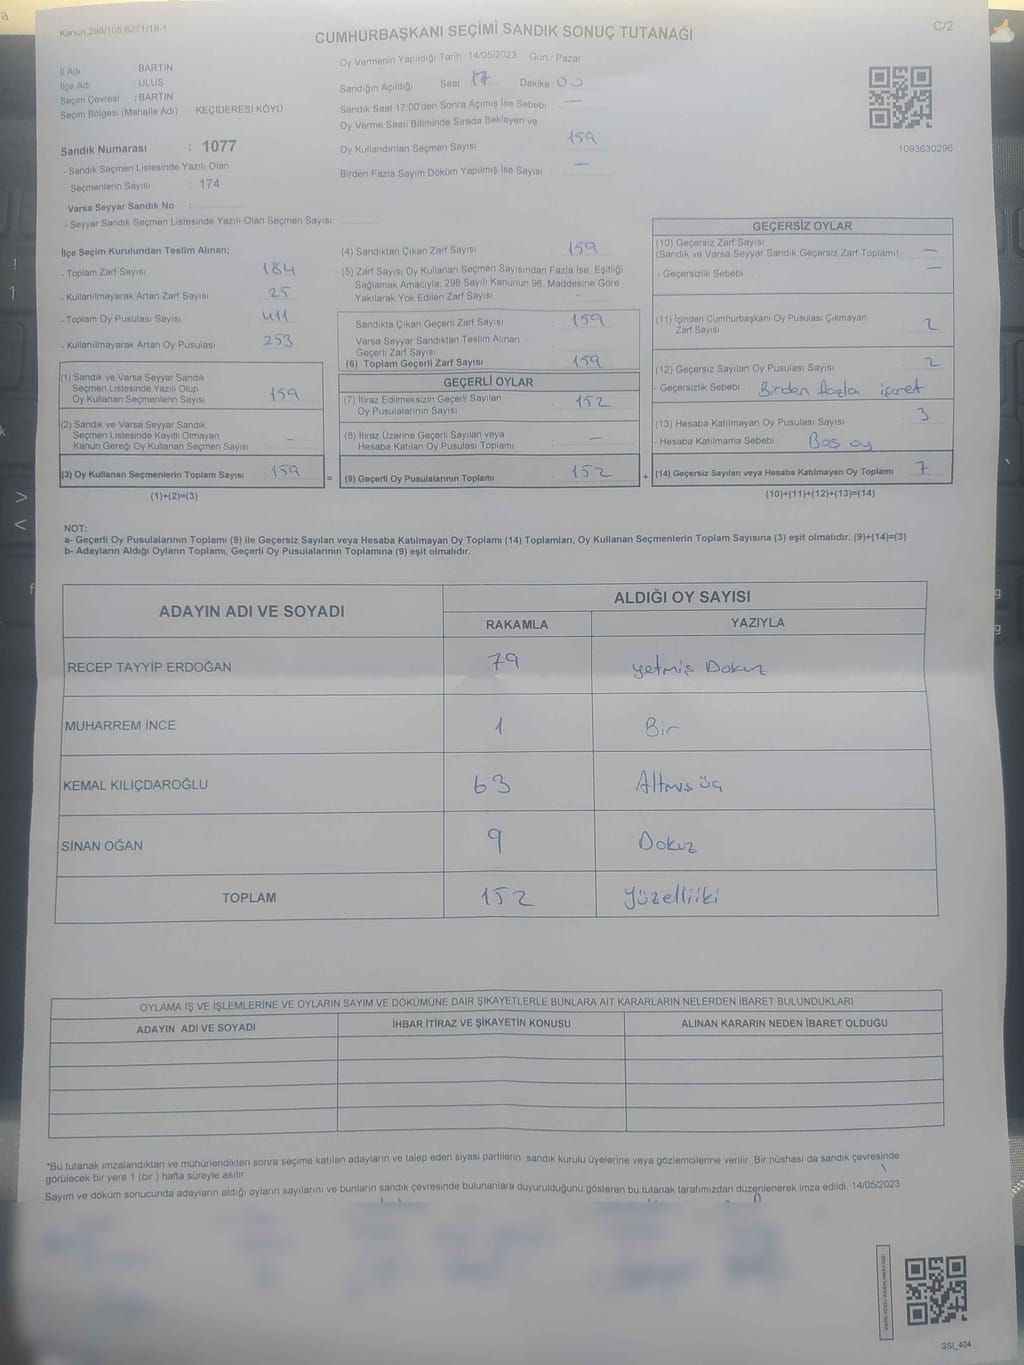 Kanun:298/105,6271/18-1
CUMHURBAŞKANI SEÇİMİ SANDIK SONUÇ TUTANAĞI
C/2
İl Adı : BARTIN
İlçe Adı : ULUS
Seçim Çevresi : BARTIN
Seçim Bölgesi (Mahalle Adı) : KEÇİDERESİ KÖYÜ
Sandık Numarası : 1077
- Sandık Seçmen Listesinde Yazılı Olan
Seçmenlerin Sayısı : 174
Varsa Seyyar Sandık No :
- Seyyar Sandık Seçmen Listesinde Yazılı Olan Seçmen Sayısı:
Oy Vermenin Yapıldığı Tarih :14/05/2023 Gün : Pazar
Sandığın Açıldığı Saat 17 Dakika 00
Sandık Saat 17:00'den Sonra Açımış İse Sebebi : —
Oy Verme Saati Bitiminde Sırada Bekleyen ve
Oy Kullandırılan Seçmen Sayısı : 159
Birden Fazla Sayım Döküm Yapılmış İse Sayısı : —
1093630296
İlçe Seçim Kurulundan Teslim Alınan;
- Toplam Zarf Sayısı : 184
- Kullanılmayarak Artan Zarf Sayısı : 25
- Toplam Oy Pusulası Sayısı : 411
- Kullanılmayarak Artan Oy Pusulası : 253
(1) Sandık ve Varsa Seyyar Sandık
Seçmen Listesinde Yazılı Olup
Oy Kullanan Seçmenlerin Sayısı : 159
(2) Sandık ve Varsa Seyyar Sandık
Seçmen Listesinde Kayıtlı Olmayan
Kanun Gereği Oy Kullanan Seçmen Sayısı : —
(3) Oy Kullanan Seçmenlerin Toplam Sayısı : 159
(1)+(2)=(3)
=
(4) Sandıktan Çıkan Zarf Sayısı : 159
(5) Zarf Sayısı Oy Kullanan Seçmen Sayısından Fazla İse, Eşitliği
Sağlamak Amacıyla; 298 Sayılı Kanunun 98. Maddesine Göre
Yakılarak Yok Edilen Zarf Sayısı : -
Sandıkta Çıkan Geçerli Zarf Sayısı : 159
Varsa Seyyar Sandıktan Teslim Alınan
Geçerli Zarf Sayısı
(6) Toplam Geçerli Zarf Sayısı : 159
GEÇERLİ OYLAR
(7) İtiraz Edilmeksizin Geçerli Sayılan
Oy Pusulalarının Sayısı : 152
(8) İtiraz Üzerine Geçerli Sayılan veya
Hesaba Katılan Oy Pusulası Toplamı : —
(9) Geçerli Oy Pusulalarının Toplamı : 152
+
GEÇERSİZ OYLAR
(10) Geçersiz Zarf Sayısı
(Sandık ve Varsa Seyyar Sandık Geçersiz Zarf Toplamı) : —
- Geçersizlik Sebebi : —
(11) İçinden Cumhurbaşkanı Oy Pusulası Çıkmayan
Zarf Sayısı : 2
(12) Geçersiz Sayılan Oy Pusulası Sayısı : 2
- Geçersizlik Sebebi : Birden fazla işaret
(13) Hesaba Katılmayan Oy Pusulası Sayısı : 3
- Hesaba Katılmama Sebebi : Boş oy
(14) Geçersiz Sayılan veya Hesaba Katılmayan Oy Toplamı : 7
(10)+(11)+(12)+(13)=(14)
NOT:
a- Geçerli Oy Pusulalarının Toplamı (9) ile Geçersiz Sayılan veya Hesaba Katılmayan Oy Toplamı (14) Toplamları, Oy Kullanan Seçmenlerin Toplam Sayısına (3) eşit olmalıdır. (9)+(14)=(3)
b- Adayların Aldığı Oyların Toplamı, Geçerli Oy Pusulalarının Toplamına (9) eşit olmalıdır.
ADAYIN ADI VE SOYADI
ALDIĞI OY SAYISI
RAKAMLA YAZIYLA
RECEP TAYYİP ERDOĞAN 79 yetmiş Dokuz
MUHARREM İNCE 1 Bir
KEMAL KILIÇDAROĞLU 63 Altmış üç
SİNAN OĞAN 9 Dokuz
TOPLAM 152 Yüzelliiki
OYLAMA İŞ VE İŞLEMLERİNE VE OYLARIN SAYIM VE DÖKÜMÜNE DAİR ŞİKAYETLERLE BUNLARA AİT KARARLARIN NELERDEN İBARET BULUNDUKLARI
ADAYIN ADI VE SOYADI İHBAR İTİRAZ VE ŞİKAYETİN KONUSU ALINAN KARARIN NEDEN İBARET OLDUĞU
*Bu tutanak imzalandıktan ve mühürlendikten sonra seçime katılan adayların ve talep eden siyasi partilerin sandık kurulu üyelerine veya gözlemcilerine verilir. Bir nüshası da sandık çevresinde
görülecek bir yere 1 (bir ) hafta süreyle asılır.
Sayım ve döküm sonucunda adayların aldığı oyların sayılarını ve bunların sandık çevresinde bulunanlara duyurulduğunu gösteren bu tutanak tarafımızdan düzenlenerek imza edildi. 14/05/2023
SSI_404